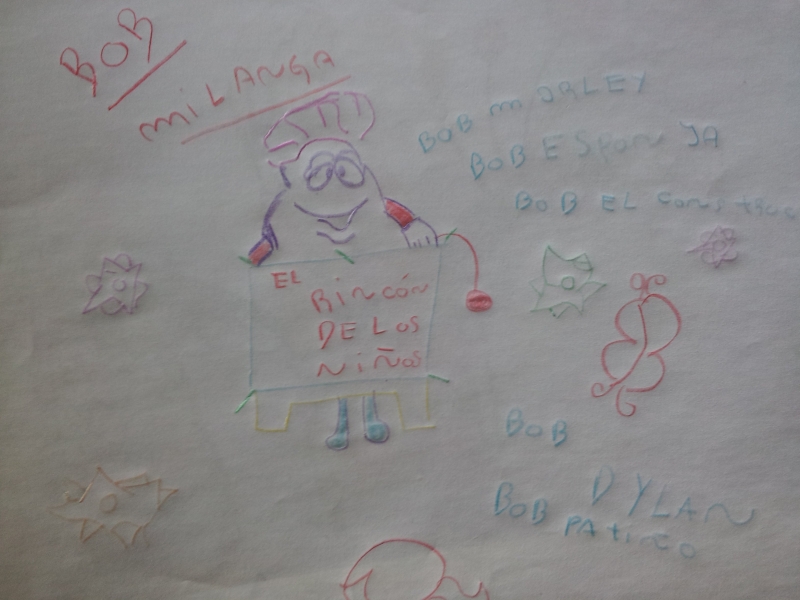 BOB
MILANGA
BOB MORLEY
BOB ESPONJA
BOB EL CONSTRUC
EL
RiNCóN
DE LOS
NiÑOS
BOB
DYLAN
BOB PATIÑO